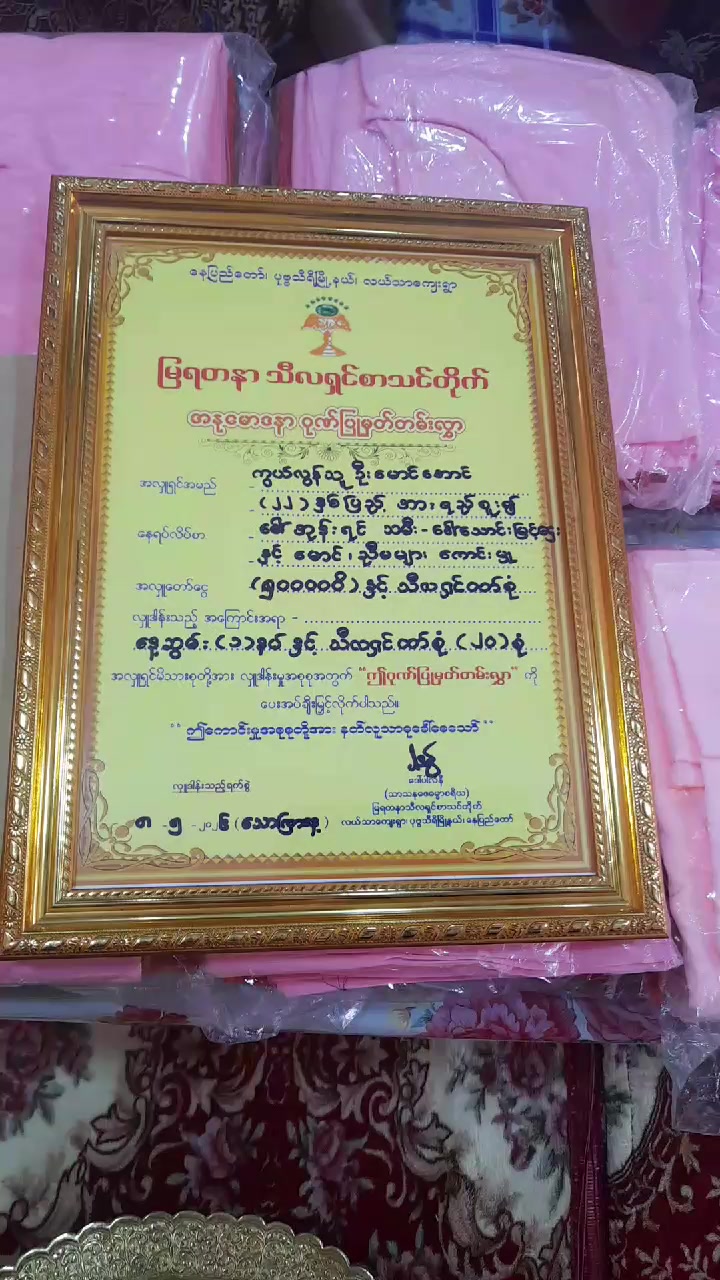 နေပြည်တော်၊ ပုဗ္ဗသီရိမြို့နယ်၊ လယ်သာကျေးရွာ
မြရတနာ သီလရှင်စာသင်တိုက်
အနုမောဒနာ ဂုဏ်ပြုမှတ်တမ်းလွှာ
အလှူရှင်အမည် - ကွယ်လွန်သူ ဦးမောင်အောင်
(၂၂) နှစ်ပြည့် အားရည်စူး၍
နေရပ်လိပ်စာ - ဒေါ်အုန်းရင် သမီး - ဒေါ်သောင်းမြင့်ဌေး
နှင့် မောင်၊ ညီမများ ကောင်းမှု
အလှူတော်ငွေ (၅၀၀၀၀၀ိ) နှင့် သီလရှင်ဝတ်စုံ
လှူဒါန်းသည့် အကြောင်းအရာ -
နေ့ဆွမ်း (၁) နပ် နှင့် သီလရှင်ဝတ်စုံ (၂၀) စုံ
အလှူရှင်မိသားစုတို့အား လှူဒါန်းမှုအစုစုအတွက် “ဤဂုဏ်ပြုမှတ်တမ်းလွှာ” ကို
ပေးအပ်ချီးမြှင့်လိုက်ပါသည်။
“ ဤကောင်းမှုအစုစုတို့အား နတ်လူသာဓုခေါ်စေသော် ”
လှူဒါန်းသည့်ရက်စွဲ
(သာသနဓဇဓမ္မာစရိယ)
မြရတနာသီလရှင်စာသင်တိုက်
၃ - ၅ - ၂၀၂၆ (သောကြာနေ့) လယ်သာကျေးရွာ၊ ပုဗ္ဗသီရိမြို့နယ်၊ နေပြည်တော်